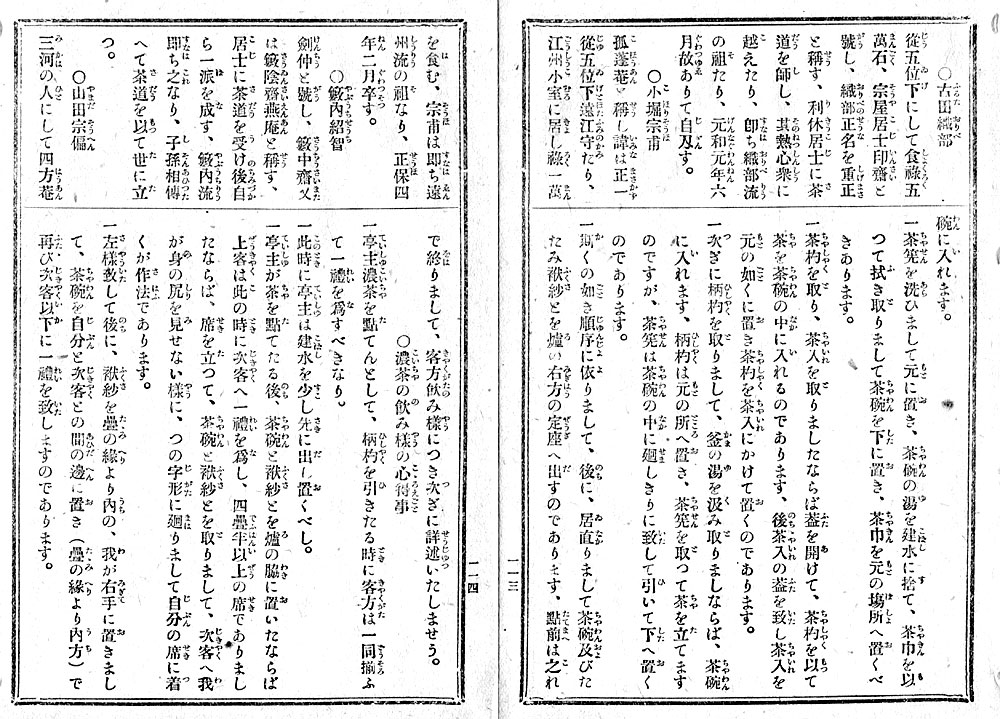 ○古田織部
從五位下にして食祿五
萬石、宗屋居士印齋と
號し、織部正名を重正
と稱す、利休居士に茶
道を師し、其熱心衆に
越えたり、卽ち織部流
の祖たり、元和元年六
月故ありて自刄す。
○小堀宗甫
孤蓬菴と稱し諱は正一
從五位下遠江守たり、
江州小室に居し祿一萬
碗に入れます。
一茶筅を洗ひまして元に置き、茶碗の湯を建水に捨て、茶巾を以
つて拭き取りまして茶碗を下に置き、茶巾を元の塲所へ置くべ
きあります。
一茶杓を取り、茶入を取りましたならば葢を開けて、茶杓を以て
茶を茶碗の中に入れるのであります、後茶入の葢を致し茶入を
元の如くに置き茶杓を茶入にかけて置くのであります。
一次ぎに柄杓を取りまして、釜の湯を汲み取りましならば、茶碗
に入れます、柄杓は元の所へ置き、茶筅を取つて茶を立てます
のですが、茶筅は茶碗の中に廻しきりに致して引いて下へ置く
のであります。
一斯くの如き順序に依りまして、後に、居直りまして茶碗及びた
たみ袱紗とを爐の右方の定座へ出すのであります、點前は之れ
一一三
を食む、宗甫は即ち遠
州流の祖なり、正保四
年二月卒す。
○籔內紹智
劍仲と號し、籔中齋又
は籔陰齋燕庵と稱す、
居士に茶道を受け後自
ら一派を成す、籔內流
卽ち之なり、子孫相傳
へて茶道を以て世に立
つ。
○山田宗徧
三河の人にして四方菴
で終りまして、客方飮み樣につき次ぎに詳述いたしませう。
○濃茶の飮み樣の心得事
一亭主濃茶を點てんとして、柄杓を引きたる時に客方は一同揃ふ
て一禮を爲すべきなり。
一此時に亭主は建水を少し先に出し置くべし。
一亭主が茶を點てたる後、茶碗と袱紗とを爐の脇に置いたならば
上客は此の時に次客へ一禮を爲し、四疊半以上の席でありまし
たならば、席を立つて、茶碗と袱紗とを取りまして、次客へ我
が身の尻を見せない樣に、つの字形に廻りまして自分の席に着
くが作法であります。
一左樣致して後に、袱紗を疊の緣より內の、我が右手に置きまし
て、茶碗を自分と次客との間の邊に置き(疊の緣より內方)で
再び次客以下に一禮を致しますのであります。
一一四